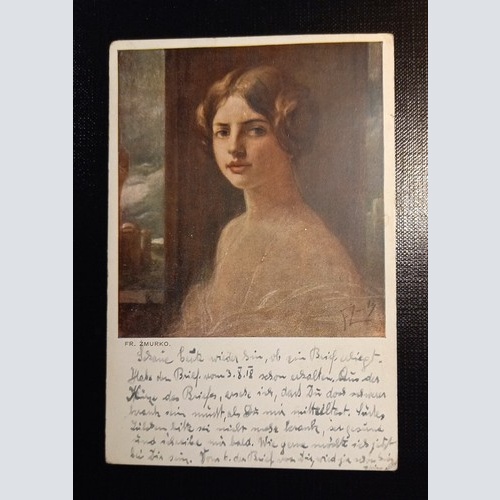 FR. ZMURKO.
Schaue heute wieder hin, ob ein Brief erliegt.
Habe den Brief vom 3. 8. 18 schon erhalten. Aus der
Kürze des Briefes, ersehe ich, dass Du doch schwer
krank sein musst als Du mir mitteiltest. Liebes
bitte sei nicht mehr krank, sei gesund
und schreibe mir bald. Wie gerne möchte ich jetzt
bei Dir sein. der Brief von Dir wird ja